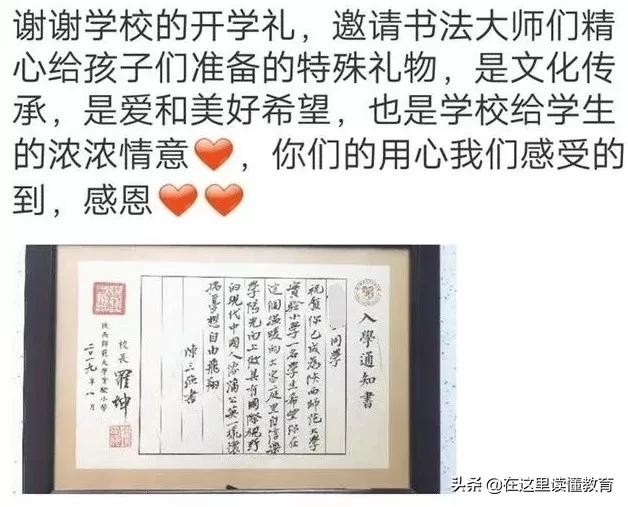 谢谢学校的开学礼，邀请书法大师们精
心给孩子们准备的特殊礼物，是文化传
承，是爱和美好希望，也是学校给学生
的浓浓情意❤️，你们的用心我们感受的
到，感恩❤️❤️
入學通知書
同学
祝賀你已成為陕西師范大學
實验小學一名學生希望你在
這個温暖的大家庭里自信樂
學陽光向上做具有國際視野
的現代中國人像蒲公英一樣懷
揣夢想自由飛翔
陳三繞書
校長 羅坤
陕西師范大學實验小學
二〇一九年八月
头条 @在这里读懂教育